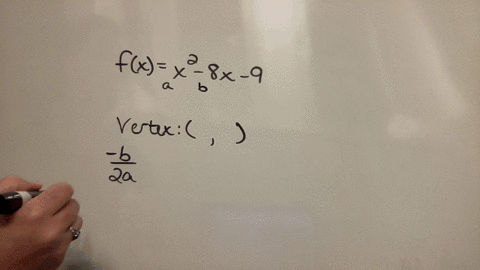 f(x)= x²-8x-9
a b
Vertex:( , )
-b
2a